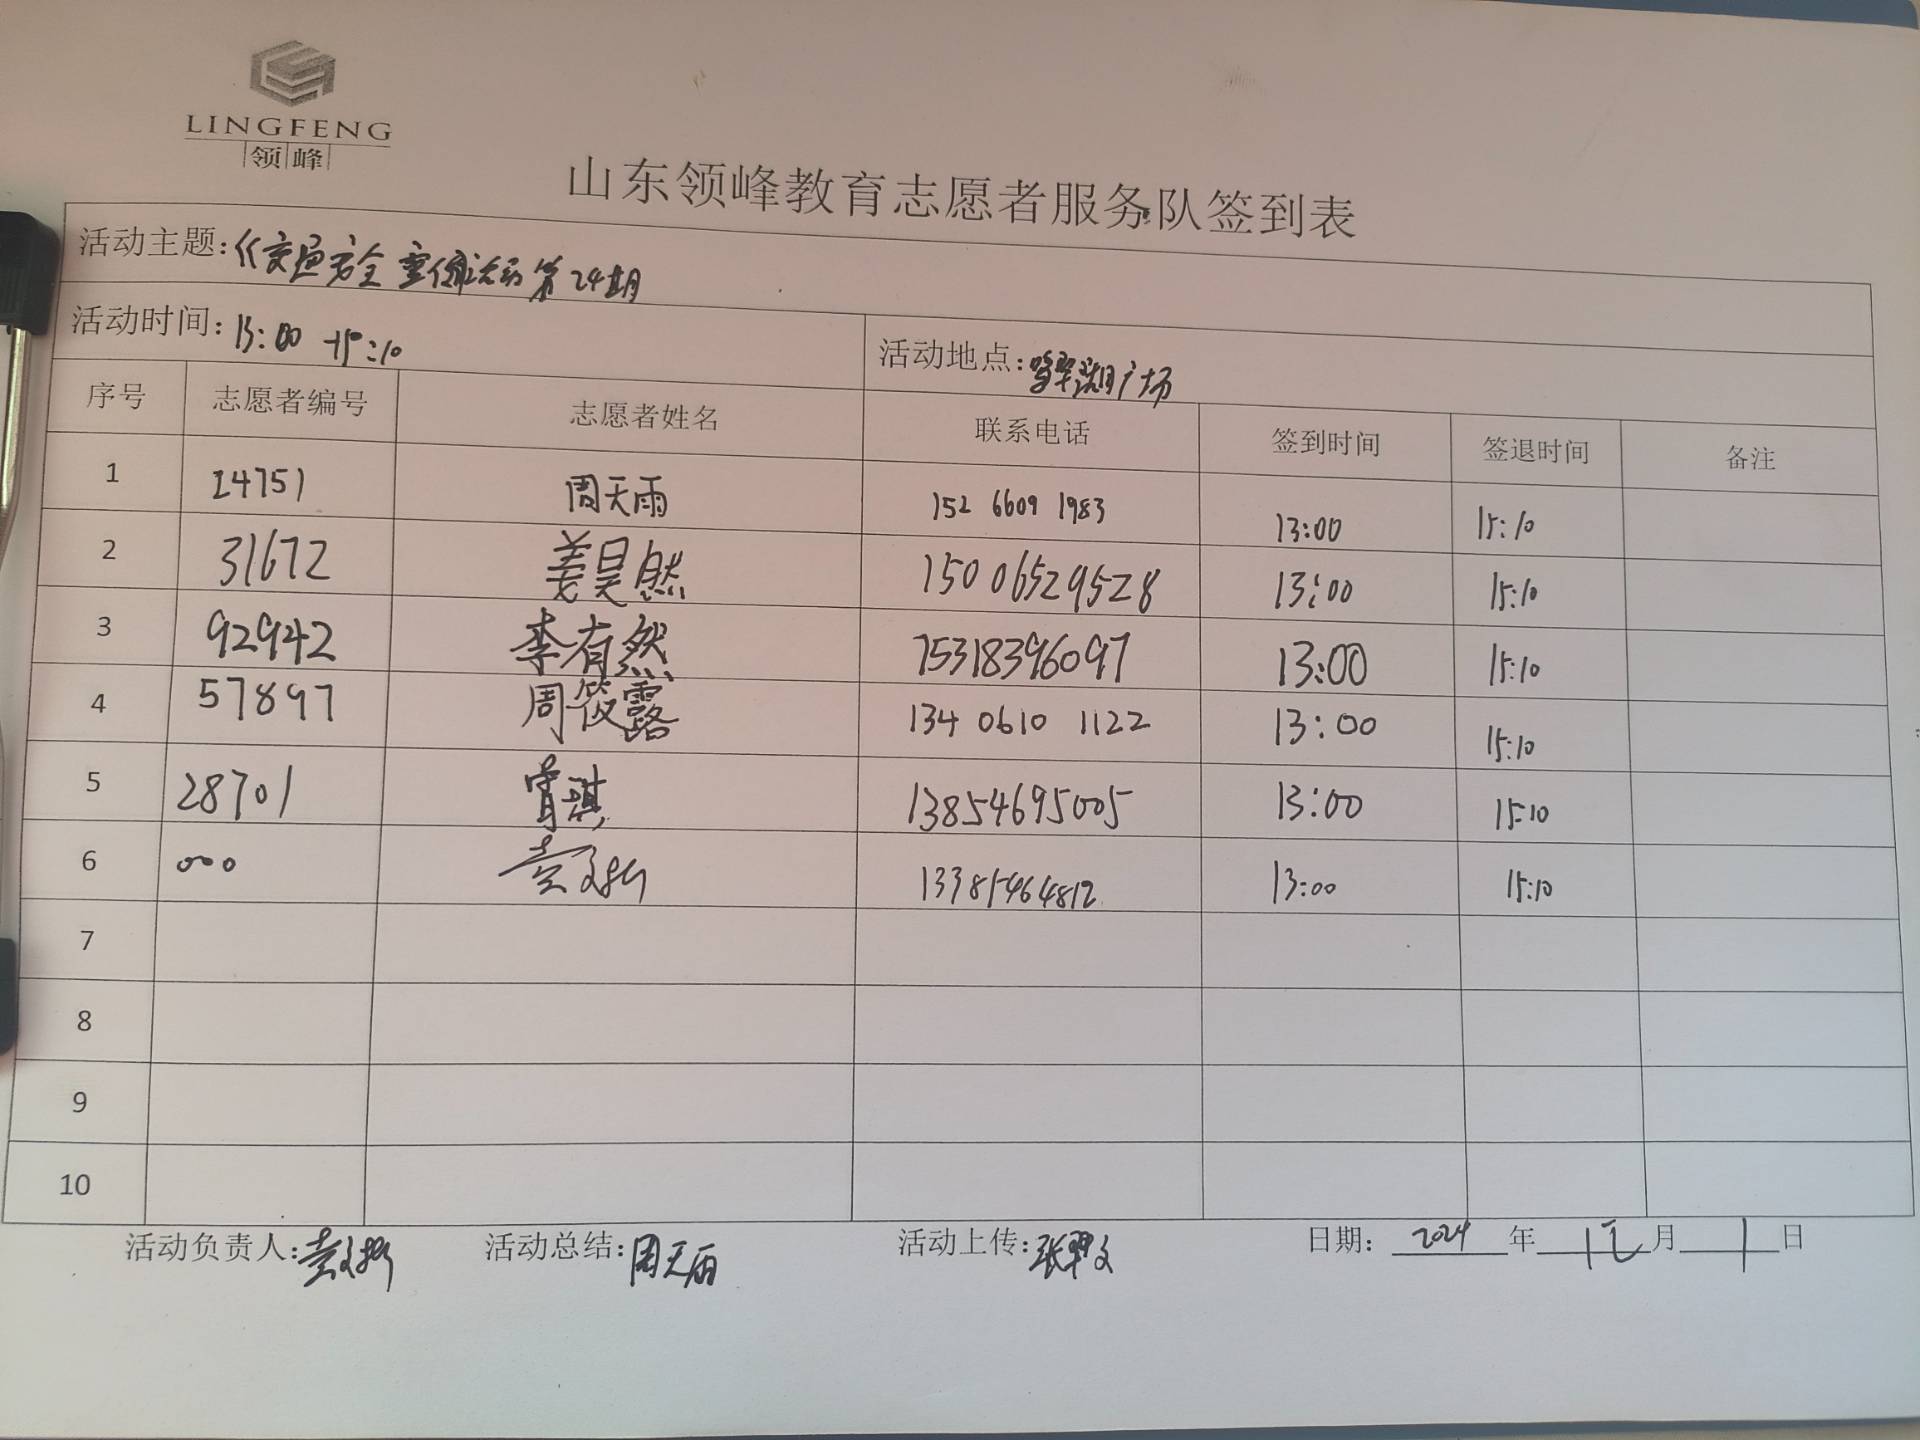 LINGFENG
领峰
山东领峰教育志愿者服务队签到表
活动主题:《交通安全宣传活动第24期
活动时间:13:00 -15:10 活动地点:广场
序号 志愿者编号 志愿者姓名 联系电话 签到时间 签退时间 备注
1 14751 周天雨 152 6609 1983 13:00 15:10
2 31672 姜昊然 15006529528 13:00 15:10
3 92942 李有然 15318396097 13:00 15:10
4 57897 周筱露 134 0610 1122 13:00 15:10
5 28701 胥琪 13854695005 13:00 15:10
6 000 13385464812 13:00 15:10
7
8
9
10
活动负责人: 活动总结:周天雨 活动上传:张翠文 日期: 2024 年 月 1 日